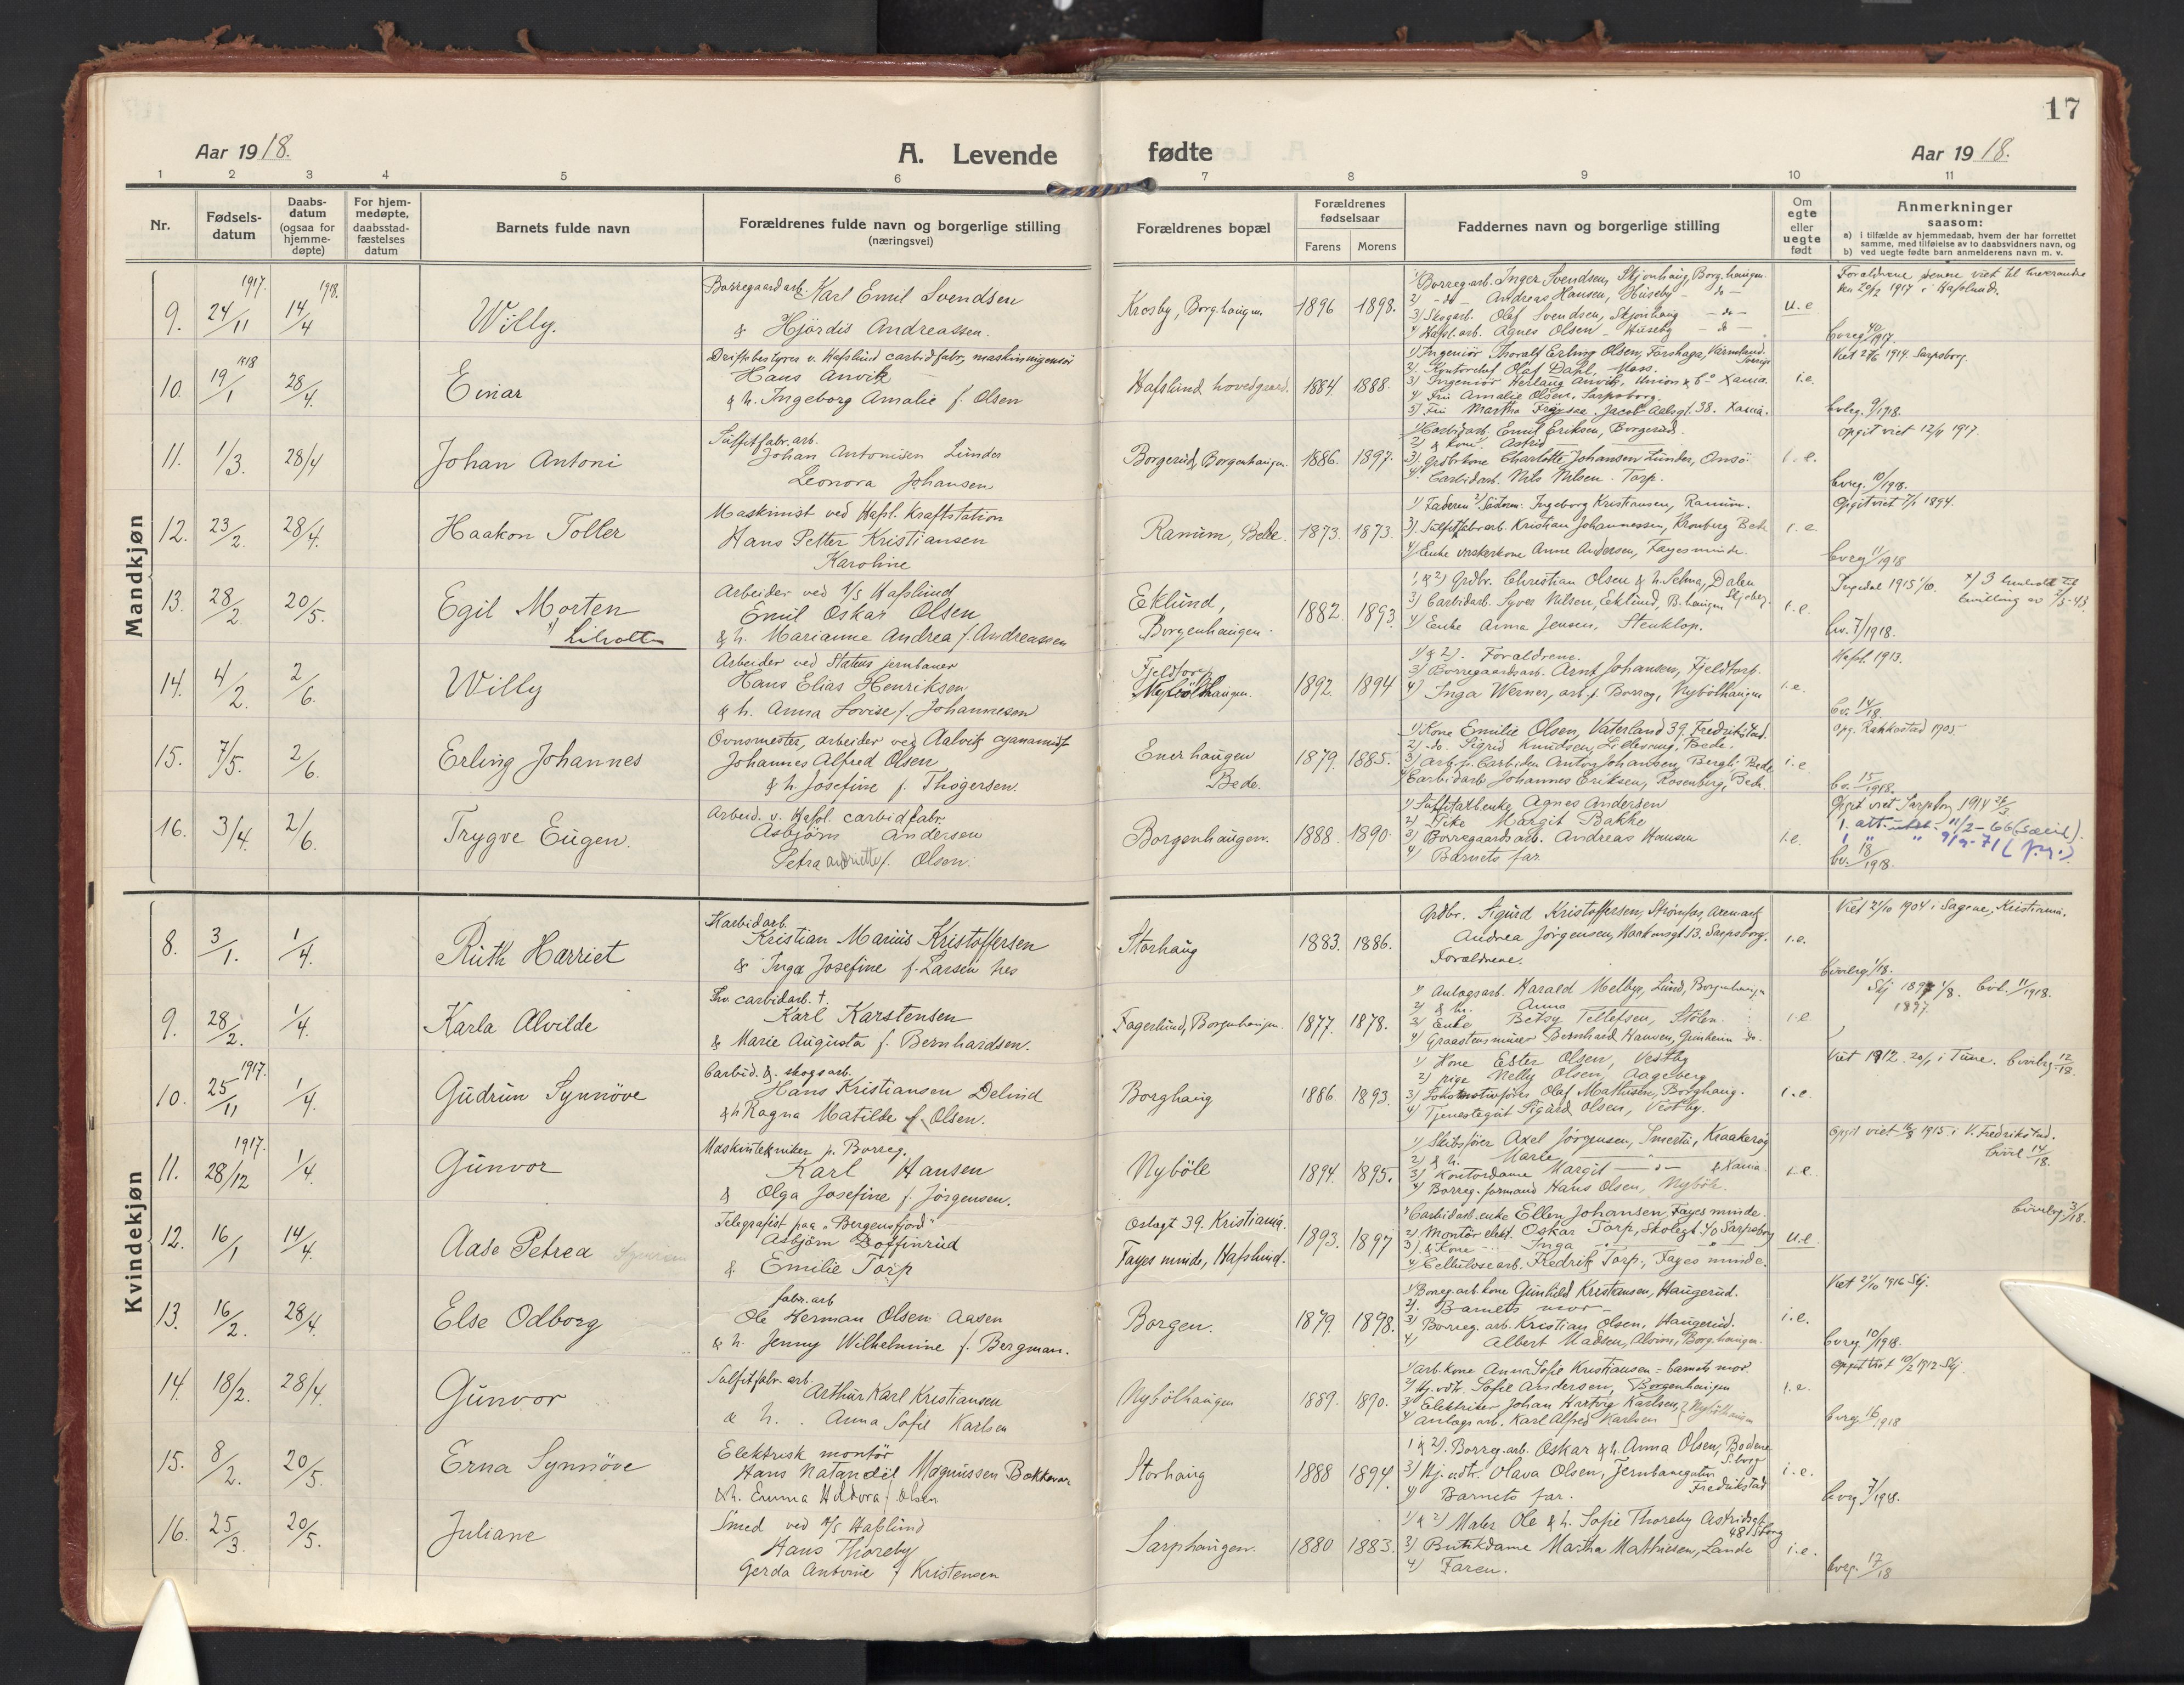 17
Aar 1918.
A. Levende fødte
Aar 1918.
1 2 3 4 5 6 7 8 9 10 11
Nr.
Fødsels-datum
Daabs-datum (ogsaa for hjemme-døpte)
For hjem-medøpte, daabsstad-fæstelses datum
Barnets fulde navn
Forældrenes fulde navn og borgerlige stilling
(næringsvei)
Forældrenes bopæl
Forældrenes fødselsaar
Farens Morens
Faddernes navn og borgerlige stilling
Om egte eller uegte født
Anmerkninger
saasom:
a) i tilfælde av hjemmedaab, hvem der har forrettet samme, med tilføielse av to daabsvidners navn, og
b) ved uegte fødte barn anmelderens navn m. v.
Mandkjøn
9. 1917. 24/11 1918. 14/4 Willy.
Borregaardarb. Karl Emil Svendsen
& Hjördis Andreassen.
Krosby, Borg.haugen. 1896 1898.
1) Borreg.arb. Inger Svendsen, Skjonhaug, Borg.haugen.
2) - do - Andreas Hansen, Huseby - do -
3) Skogarb. Olaf Svendsen, Skjonhaug - do -
4) Hafsl.arb. Agnes Olsen - Huseby - do -
u.e
Forældrene senere viet til hverandre
den 20/12 1917 i Hafslund.
10. 1918 19/1 28/4. Einar
Driftsbestyrer v. Hafslund carbidfabr, maskiningeniör
Hans Anvik
& h. Ingeborg Amalie f. Olsen
Hafslund hovedgaard. 1884 1888.
1) Ingeniör Thoralf Erling Olsen, Forshaga, Värmland. Sverige
2) Kontorchef Olaf Dahl, Moss.
3) Ingeniör Herlaug Anvik, Union & Co Xania.
4) Fru Amalie Olsen, Sarpsborg.
5) Fru Martha Jacob Aalsgt. 38. Xania.
i.e.
1914. Sarpsborg.
9/1918.
11. 1/3. 28/4 Johan Antoni
Sulfitfabr.arb.
Johan Antonisen Lunder
Leonora Johansen
Borgerud, Borgenhaugen. 1886. 1897.
1) Carbidarb. Emil Eriksen, Borgerud.
2) & kone Astrid
3) Grdbr.kone Charlotte Johansen Lunder, Onsö
4) Carbidarb. Nils Nilsen. Torp.
i.e.
Opgit viet 12/4 1917.
10/1918.
12. 23/2. 28/4. Haakon Toller
Maskinist ved Hafsl. Kraftstation
Hans Petter Kristiansen
Karoline
Ranum, Bede. 1873. 1873.
1) Faderen 2) Søsteren: Ingeborg Kristiansen, Ranum.
3) Sulfitfabr.arb. Kristian Johannessen, Kronberg Bede
4) Enke vaskerkone Anne Andersen, Fayesminde.
i.e.
Opgit viet 7/1 1894.
11/1918
13. 28/2. 20/5. Egil Morten
x) Lilholt
Arbeider ved A/S Hafslund
Emil Oskar Olsen
& h. Marianne Andrea f. Andreassen
Eklund,
Borgenhaugen. 1882. 1893.
1) & 2) Grdbr. Christian Olsen & h. Selma, Dalen Skjeberg.
3) Carbidarb. Syver Nilsen, Eklund, B.haugen
4) Enke Anna Jensen, Stenklop.
i.e.
Ingedal 1915
7/1918.
14. 4/2. 2/6. Willy
Arbeider ved Statens jernbaner
Hans Elias Henriksen
& h. Anna Lovise f. Johannesen
Fjeldtorp
Nybölhaugen. 1892. 1894
1) & 2). Forældrene.
3) Borregaardsarb. Arnt Johansen, Fjeldtorp.
4) Inga Werner, arb. p. Borreg, Nybölhaugen
i.e.
Hafsl. 1913.
14/18.
15. 7/5. 2/6. Erling Johannes
Ovnsmester, arbeider ved Aalvik cyanamid
Johannes Alfred Olsen
& h. Josefine f. Thögersen.
Enerhaugen
Bede. 1879. 1885.
1) Kone Emilie Olsen, Vaterland 39. Fredrikstad.
2) do. Sigrid Knudsen, Bede.
3) Arb. p. Carbiden Anton Johansen, Bergli. Bede
4) Carbidarb. Johannes Eriksen, Rosenberg, Bede.
i.e
Opg. Rakkestad 1905.
15/1918.
16. 3/4. 2/6. Trygve Eugen.
Arbeid. v. Hafsl. carbidfabr.
Asbjörn Andersen
Petra f. Olsen.
Borgenhaugen. 1888. 1890
1) Agnes Andersen
2) Pike Margit Bakke
3) Borregaardsarb. Andreas Hansen
4) Barnets far.
i.e.
Opgit viet Sarpsborg 1914
18/1918.
Kvindekjøn
8. 3/1. 1/4. Ruth Harriet
Karbidarb.
Kristian Marius Kristoffersen
& Inga Josefine f. Larsen hes
Storhaug 1883. 1886.
Grdbr. Sigurd Kristoffersen, Strömfos, Aremark
Andrea Jörgensen, Haakonsgt. 13. Sarpsborg.
Forældrene.
i.e.
Viet 1904 i Sagene, Kristiania.
9. 28/2. 1/4. Karla Alvilde
Fhv. carbidarb. †.
Karl Karstensen
& Marie Augusta f. Bernhardsen.
Fagerlund, Borgenhaugen. 1877. 1878.
1) Anlagsarb. Harald Melbye, Lund, Borgenhaugen
2) & h. Anna
3) Enke Betsy Tellefsen, Stölen
4) Graastensmurer Bernhard Hansen, Gunheim do.
i.e
11/1918.
1897.
10. 1917. 25/11 1/4. Gudrun Synnöve
Carbid. & skogsarb.
Hans Kristiansen Delind
& h Ragna Matilde f. Olsen.
Borghaug 1886. 1893.
1) Kone Ester Olsen, Vestby
2) pige Nelly Olsen, Aageberg
3) Lokomotivförer Olaf Mathisen, Borghaug.
4) Tjenestegut Sigurd Olsen, Vestby.
i.e.
Viet 1912. 20/1 i Tune.
11. 1917. 28/12 1/4. Gunvor
Maskintekniker p. Borreg.
Karl Hansen
& Olga Josefine f. Jörgensen.
Nyböle 1894. 1895.
1) Skibsfører Axel Jörgensen, Kraakeröy
2) & h. Marie
3) Kontordame Margit
4) Borreg. formand Hans Olsen, Nyböle.
i.e.
Opgit viet 1915 i V. Fredrikstad.
14/18.
12. 16/1 14/4. Aase Petrea
Telegrafist paa "Bergensfjord"
Asbjörn Doffinrud
& Emilie Torp
Oslogt 39. Kristiania.
Fayes minde, Hafslund. 1893. 1897
1) Carbidarb.enke Ellen Johansen, Fayes minde.
2) Montör elekt. Oskar Torp, Skolegt 40 Sarpsborg
3) & Kone Inga
4) Cellulosearb. Fredrik Torp, Fayes minde.
u.e.
13. 16/2. 28/4. Else Odborg
fabr. arb
Ole Herman Olsen Aasen
& h. Jenny Wilhelmine f. Bergman.
Borgen. 1879. 1898.
1) Borreg.arb. kone Gunhild Kristiansen, Haugerud.
2) Barnets mor
3) Borreg. arb. Kristian Olsen, Haugerud.
4) Albert Madsen, Borg.haugen.
i.e.
Viet 1916 Skj.
10/1918.
14. 18/2. 28/4. Gunvor
Sulfitfabr. arb.
Arthur Karl Kristiansen
& h. Anna Sofie Karlsen
Nybölhaugen 1889. 1890.
1) Arb.kone Anna Sofie Kristiansen = barnets mor.
2) Hj.vdtr. Sofie Andersen, Borgenhaugen
3) Elektriker Johan Hartvig Karlsen,
4) Anlags arb. Karl Alfred Karlsen } Nybölhaugen
i.e.
Opgit viet 1912 Skj.
16/1918
15. 8/2. 20/5. Erna Synnöve
Elektrisk montör
Hans Natandil Magnussen Bakkevar
& h. Emma Haldora f. Olsen
Storhaug 1888 1894.
1 & 2). Borreg.arb. Oskar & h. Anna Olsen, Bodene S.borg
3) Hj.vdtr. Olava Olsen, Jernbanegaten Fredrikstad
4) Barnets far.
i.e.
7/1918.
16. 25/3. 20/5. Juliane
Smed ved A/S Hafslund
Hans Thoreby
Gerda Antonie f Kristensen
Sarphaugen. 1880 1883.
1) & 2) Maler Ole & h. Sofie Thoreby Astridsgt. 48 S.borg
3) Butikdame Martha Mathiesen, Lande
4) Faren.
i.e.
17/18